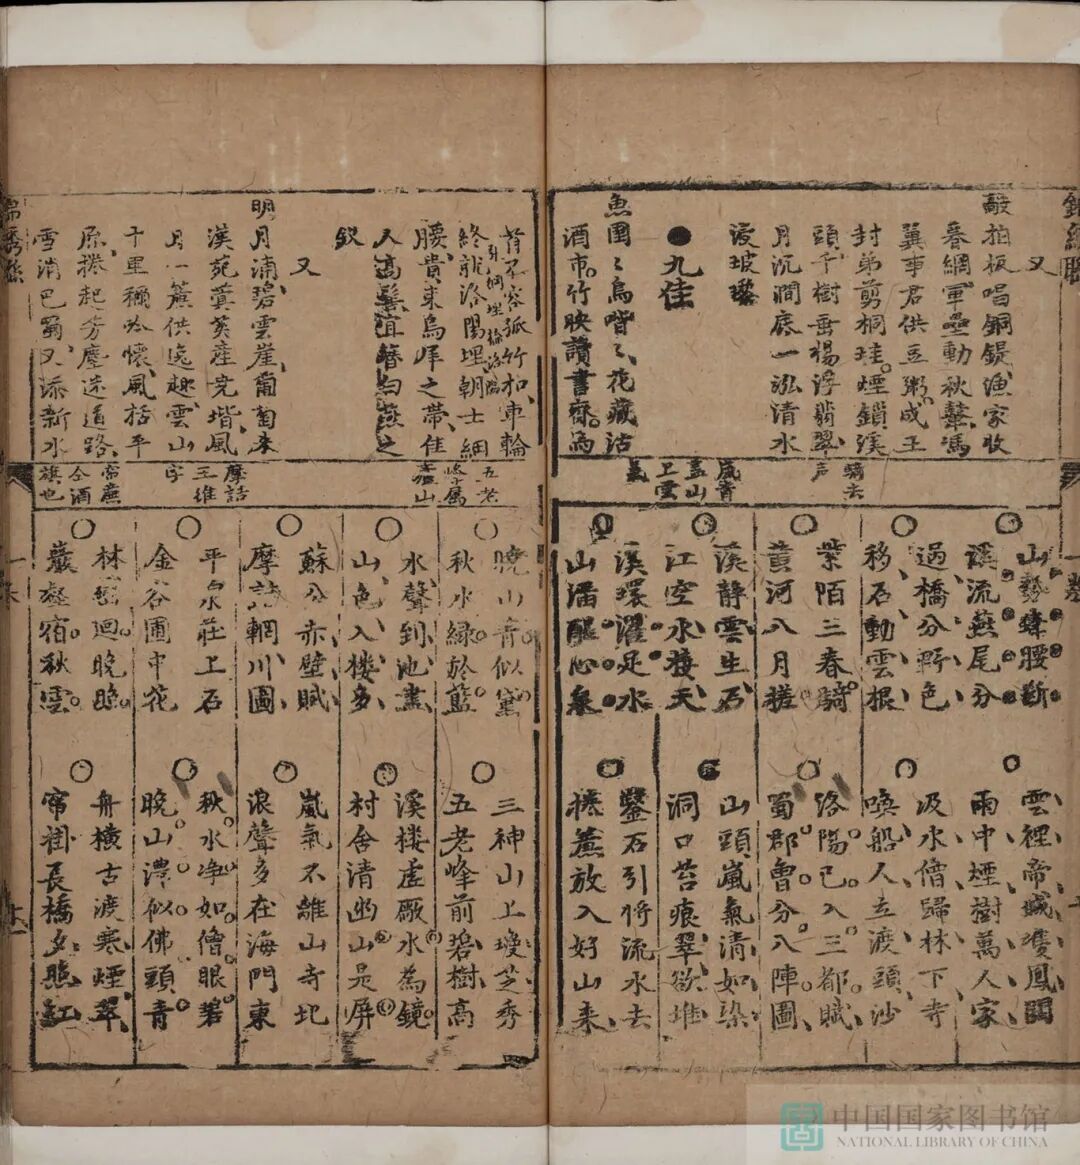 又
敲拍板唱銅鍉漁家收
暮網軍壘動秋鼙馮
異事君供豆粥成王
封弟剪桐珪煙鎖溪
頭千樹垂楊浮翡翠
月沉澗底一泓清水
浸玻瓈
●九佳
魚圉圉鳥喈喈花藏沽
酒市竹映讀書齋為
首不容孤竹扣車輪
終就洛陽埋朝士綱
腰貴束烏犀之帶佳
人高鬟宜簪白燕之
釵
又
明月浦碧雲崖葡萄來
漢苑蓂莢產堯堦風
月一簾供逸趣雲山
千里稱吟懷風括平
原捲起芳塵迷道路
雪消巴蜀又添新水
騎去
声
嵐音
盖山
上雲
氣
五老
峰属
廬山
摩詰
王維
字
帘簾
仝酒
旗也
山勢蜂腰斷
溪流燕尾分
過橋分野色
移石動雲根
紫陌三春騎
黃河八月槎
溪靜雲生石
江空水接天
溪環濯足水
山潘醒心泉
雲裡帝城雙鳳闕
雨中煙樹萬人家
汲水僧歸林下寺
喚船人立渡頭沙
洛陽已入三都賦
蜀郡曾分八陣圖
山頭嵐氣清如染
洞口苔痕翠欲堆
鑿石引將流水去
捲簾放入好山來
曉山青似黛
秋水綠於藍
水聲到池盡
山色入樓多
蘇公赤壁賦
摩詰輞川圖
平泉庄上石
金谷圃中花
林巒迴晚
巖壑宿秋雲
三神山上瓊芝秀
五老峰前碧樹高
溪樓虛厰水為鏡
村舍清幽山是屏
嵐氣不離山寺北
浪聲多在海門東
秋水净如僧眼碧
晚山濃似佛頭青
舟橫古渡寒煙翠
帘掛長橋夕照紅
中国国家图书馆
NATIONAL LIBRARY OF CHINA